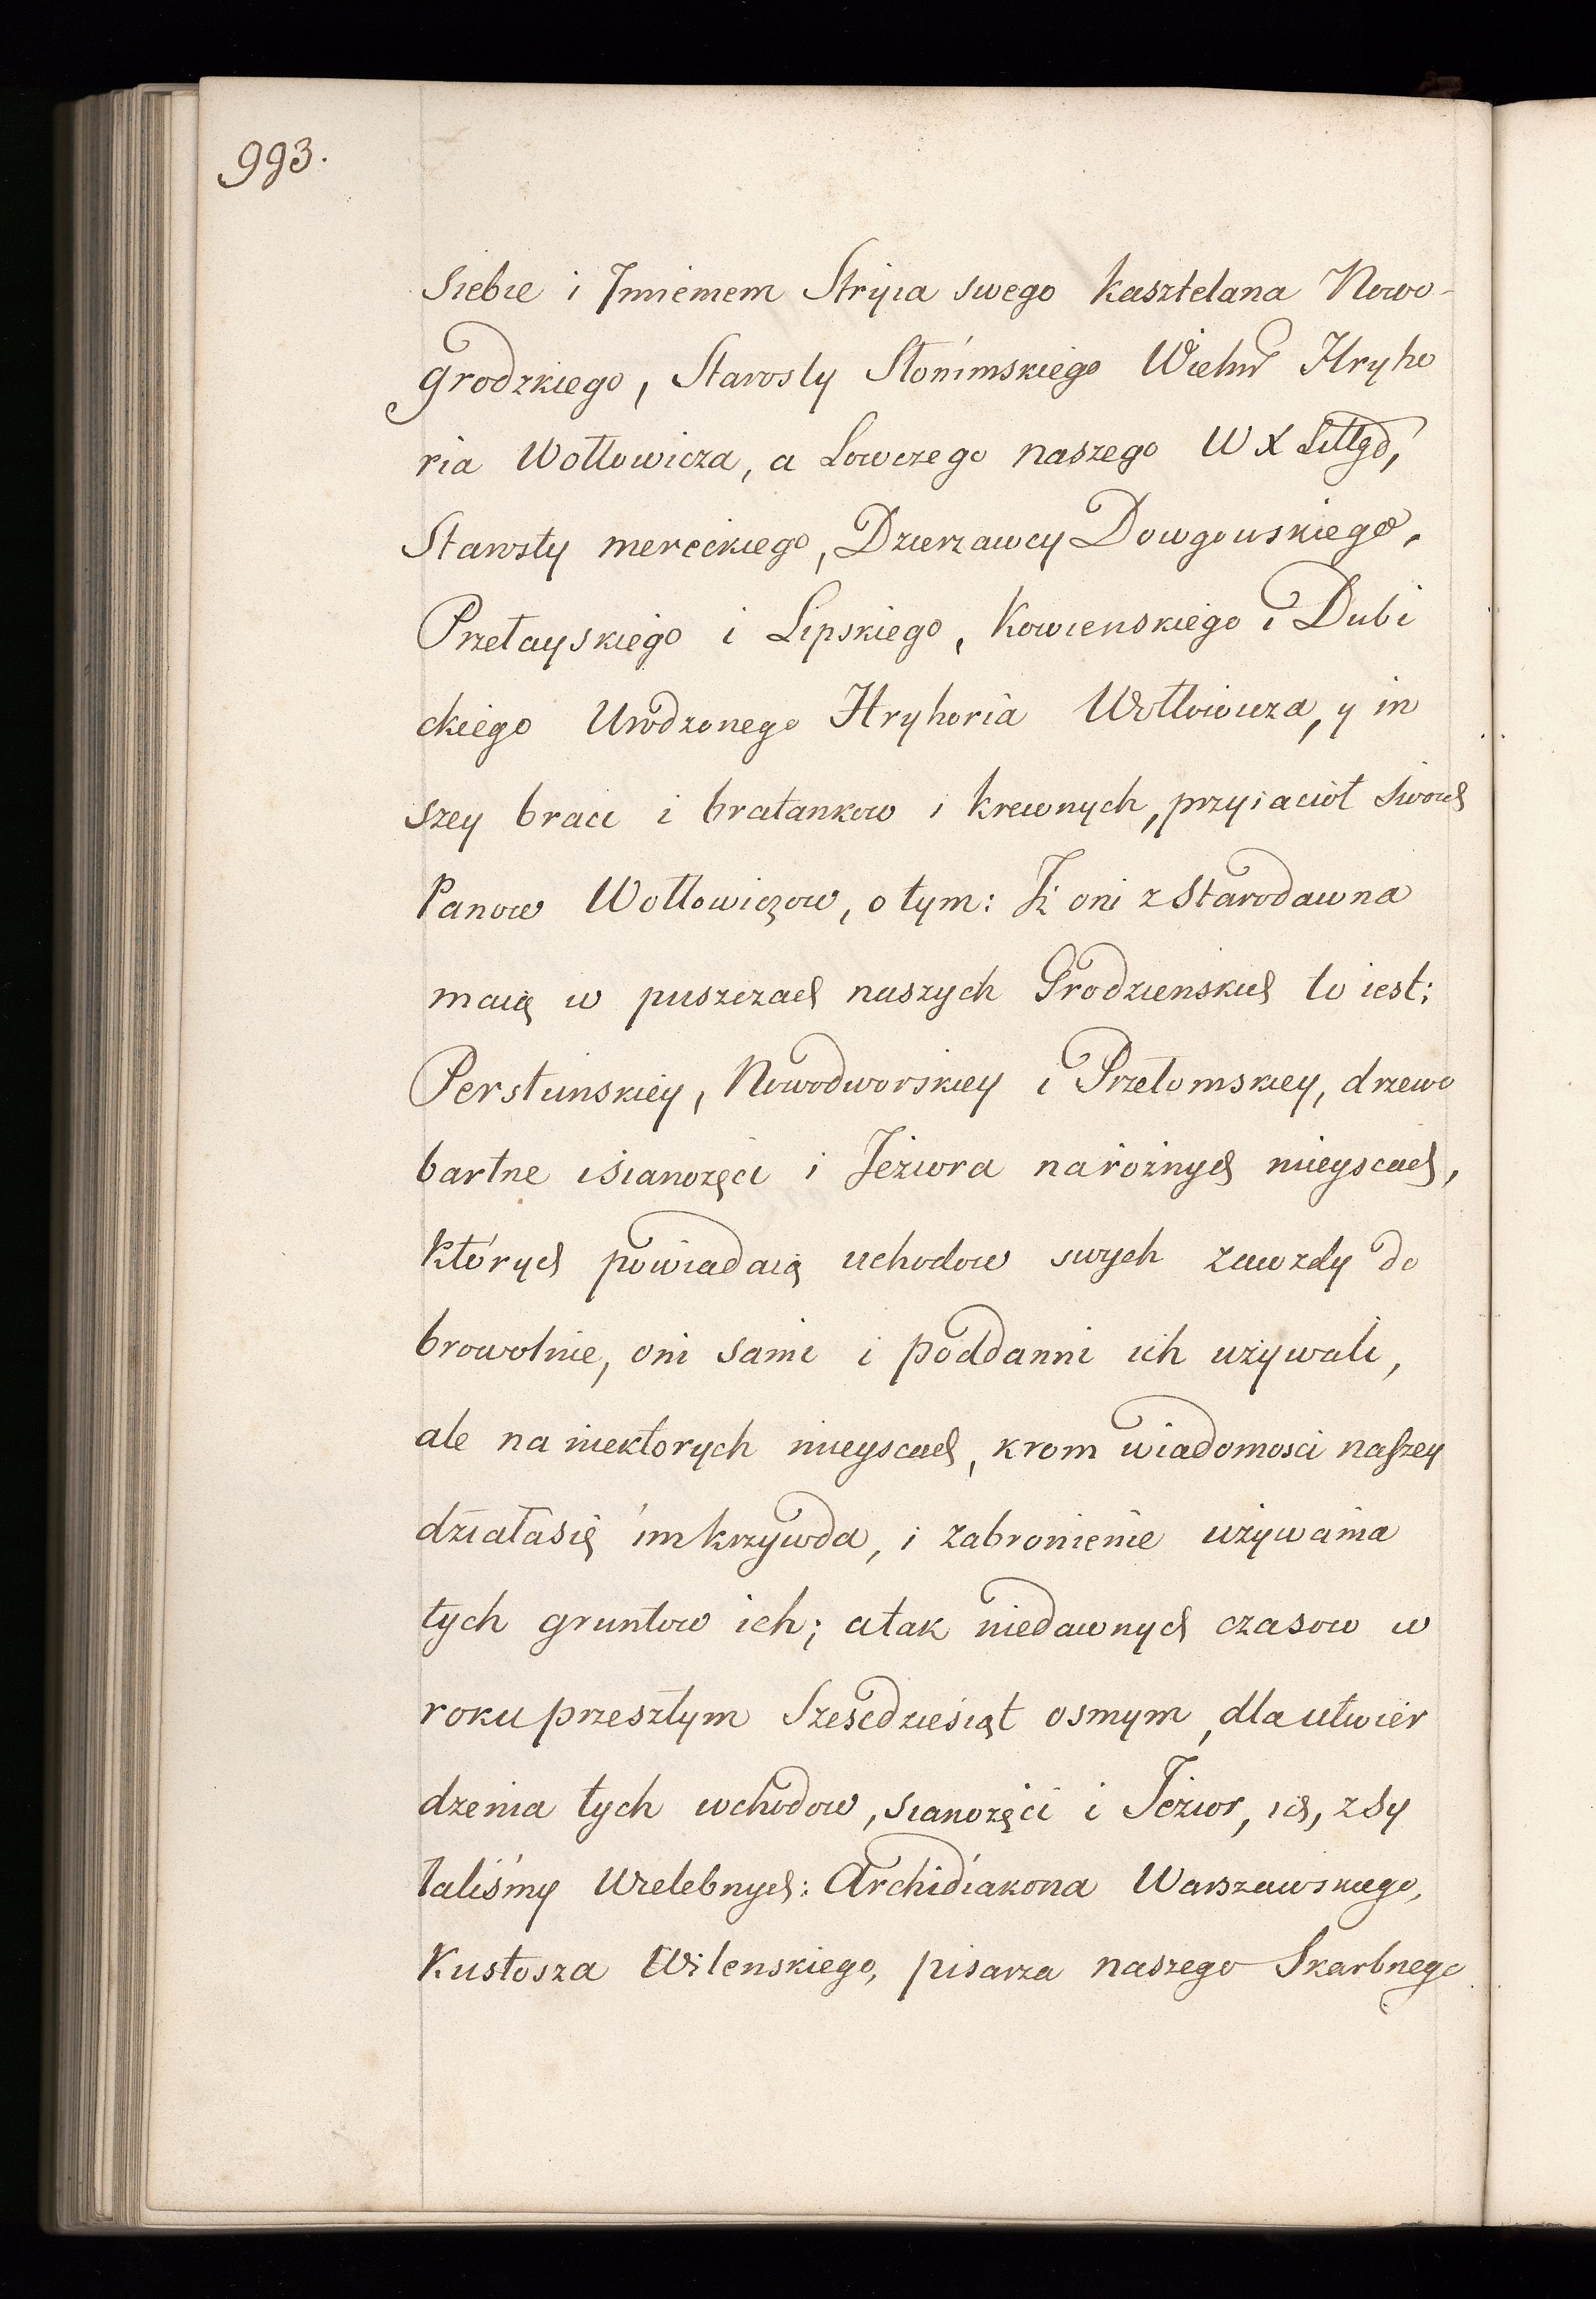 993.
siebie i Jmieniem Stryia swego kasztelana Nowo-
grodzkiego, Starosty Słonimskiego Wielm Hryho
ria Wołłowicza, a Łowczego naszego W X Littgo,
Starosty mereckiego, Dzierzawcy Dowgowskiego,
Przełayskiego i Lipskiego, Kowienskiego i Dubi
ckiego Urodzonego Hryhoria Wołłowicza, y in
szey braci i bratankow i krewnych, przyiacioł swoich
Panow Wołłowiczow, o tym: Iż oni z starodawna
maią w puszczach naszych Grodzienskich to iest:
Perstunskiey, Nowodworskiey i Przełomskiey, drzewo
bartne i sianożęci i Jeziora na rożnych mieyscach,
których powiadaią uchodow swych zawzdy do
browolnie, oni sami i poddanni ich używali,
ale na niektorych mieyscach, krom wiadomosci naszey
działa się im krzywda, i zabronienie używania
tych gruntow ich; a tak niedawnych czasow w
roku przeszłym Szescdziesiąt osmym, dla utwier
dzenia tych wchodow, sianożęci i Jezior, ich, zsy
łaliśmy Wielebnych: Archidiakona Warszawskiego,
Kustosza Wilenskiego, pisarza naszego Skarbnego